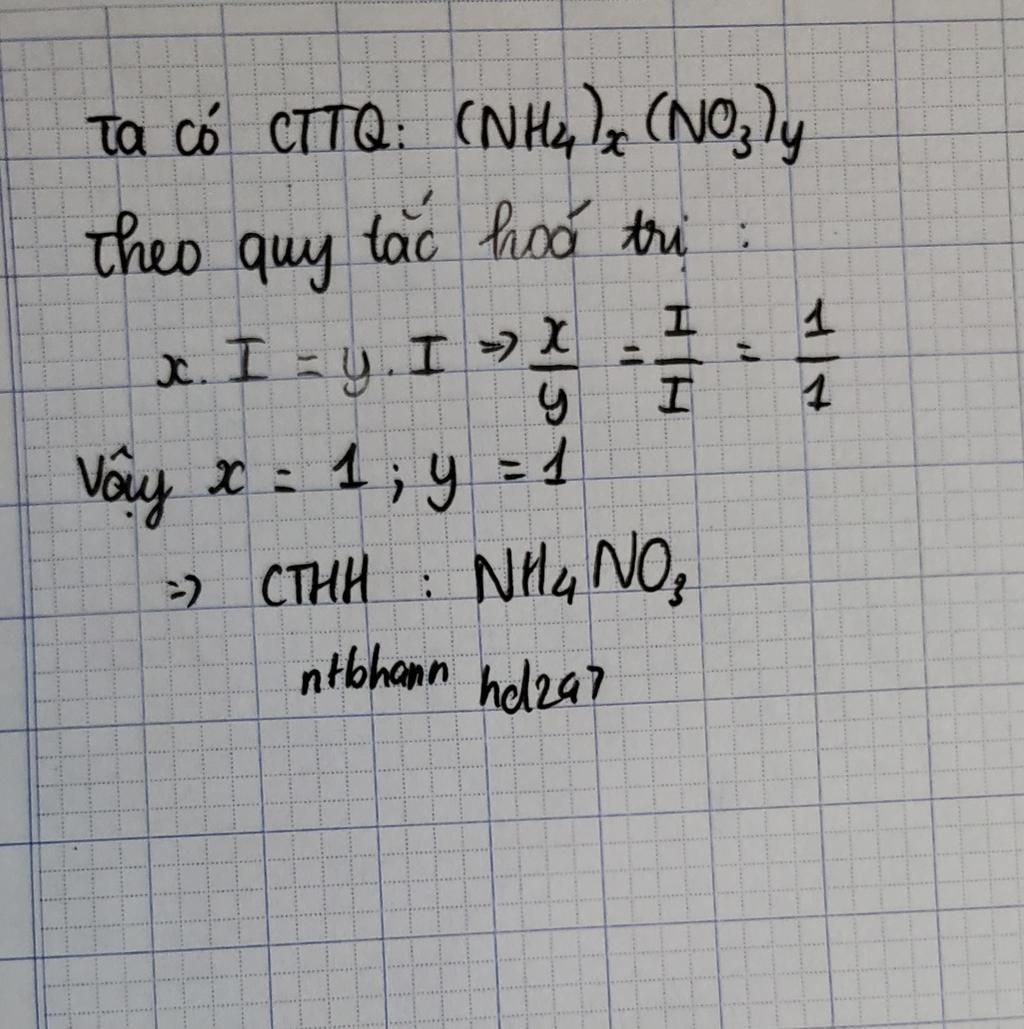 Ta có CTTQ: (NH₄)ₓ(NO₃)y
Theo quy tắc hoá trị :
x. I = y. I => x/y = I/I = 1/1
Vậy x = 1 ; y = 1
=> CTHH : NH₄NO₃
ntbhann hd2a7